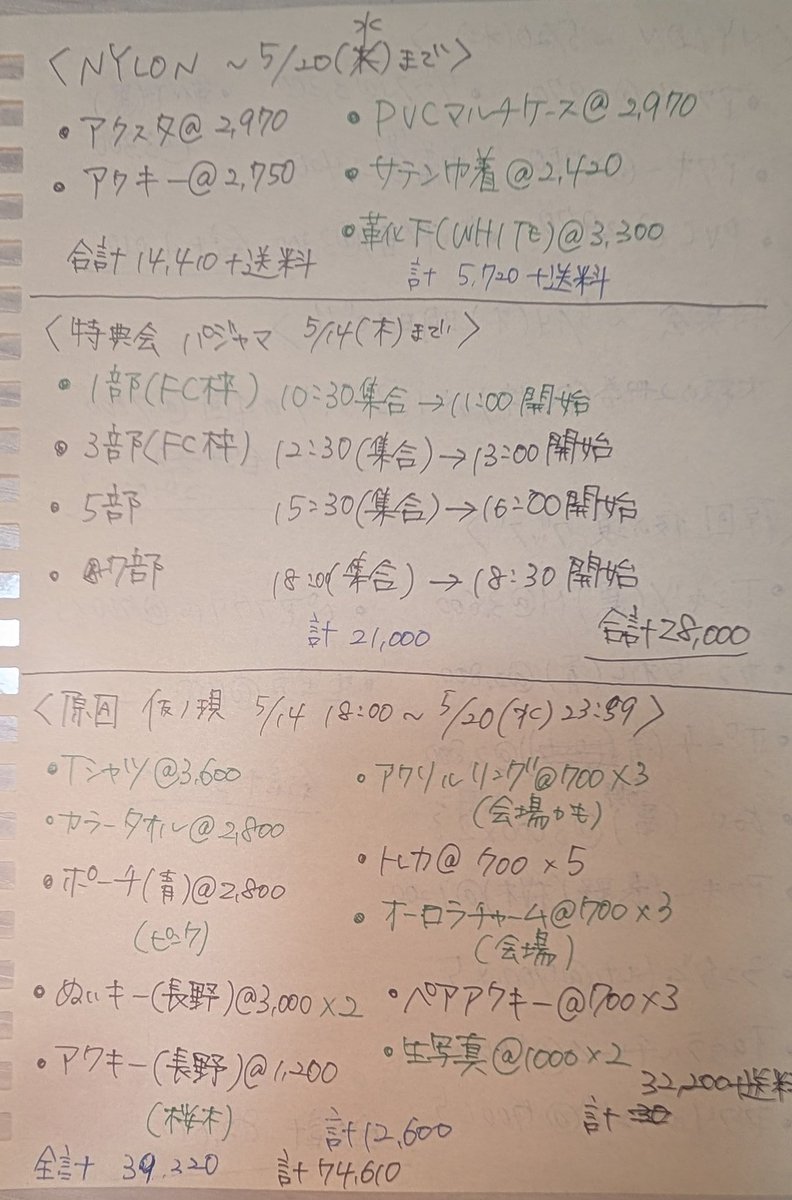 〈NYLON ~5/20(水)まで〉
水
• アクスタ@2,970
• PVCマルチケース@2,970
• アクキー@2,750
• サテン巾着@2,420
• 靴下(WHITE)@3,300
合計 14,410+送料
計 5,720+送料
〈特典会 パジャマ 5/14(木)まで〉
• 1部(FC枠) 10:30集合→11:00開始
• 3部(FC枠) 12:30(集合)→13:00開始
• 5部 15:30(集合)→16:00開始
• 7部 18:00(集合)→18:30開始
計 21,000
合計28,000
〈原因 仮ノ現 5/14 18:00~5/20(水)23:59〉
• Tシャツ@3,600
• アクリルリング@700×3
(会場かも)
• カラータオル@2,800
• トレカ@700×5
• ポーチ(青)@2,800
(ピンク)
• オーロラチャーム@700×3
(会場)
• ぬいキー(長野)@3,000×2
• ペアアクキー@700×3
• アクキー(長野)@1,200
(桜木)
• 生写真@1000×2
32,200+送料
計 30
計12,600
全計 39,320
計74,610